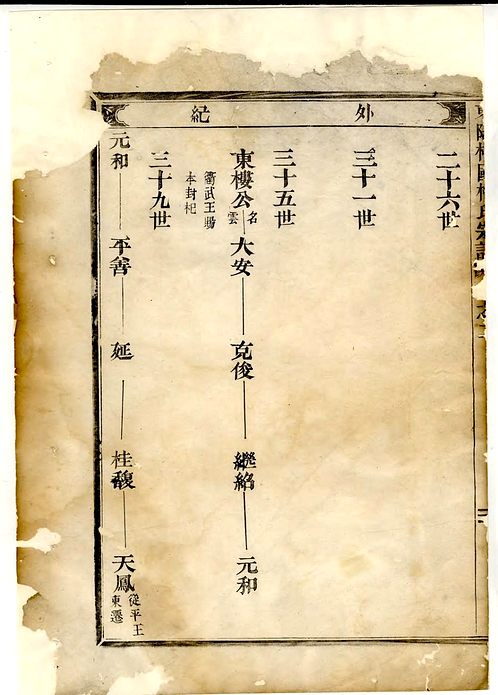 外紀
二十六世
三十一世
三十五世
東樓公
名雲
武王賜
本封杞
大安
克俊
繼
元和
三十九世
元和
平善
延
桂馥
天鳳
從平王
東遷